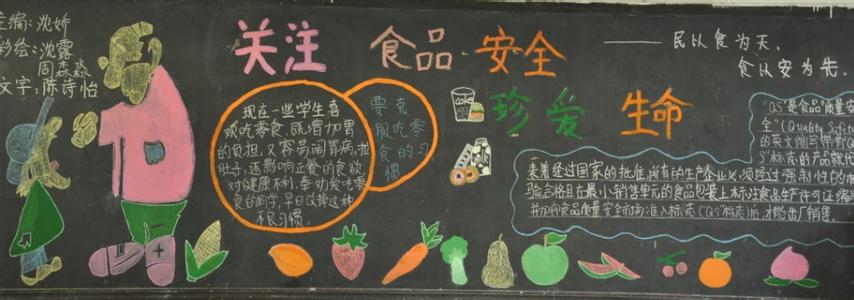 主编:沈娇
彩绘:沈露
周淼淼
文字:陈诗怡
关注 食品 安全
珍爱 生命
——民以食为天,
食以安为先.
现在一些学生喜
欢吃零食,既增加胃
的负担,又容易闹胃病,拉
肚子,还影响正餐的食欲,
对健康不利,奉劝爱吃零
食的同学,早日改掉这种
不良习惯。
要克
服吃零
食的习
惯
"QS"是食品"质量安
全"(Quality Safe
的英文缩写
QS"标志的产品就代
表着经过国家的批准,所有的生产企业必须经过强制性的
验合格且在最小销售单元的食品包装上标注食品生产许可证
并加印食品质量安全市场准入标志("QS"标志)后才能出厂销售.